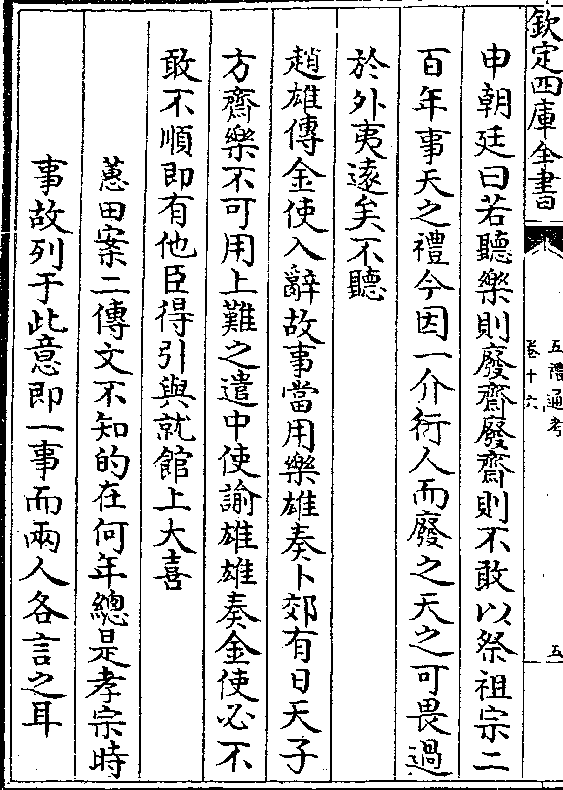 欽定四庫全書
五禮通考
卷十六
五
申朝廷曰若聽樂則廢齋廢齋則不敢以祭祖宗二
百年事天之禮今因一介行人而廢之天之可畏過
於外夷遠矣不聽
趙雄傳金使入辭故事當用樂雄奏卜郊有日天子
方齋樂不可用上難之遣中使諭雄雄奏金使必不
敢不順即有他臣得引與就館上大喜
蕙田案二傳文不知的在何年總是孝宗時
事故列于此意即一事而兩人各言之耳